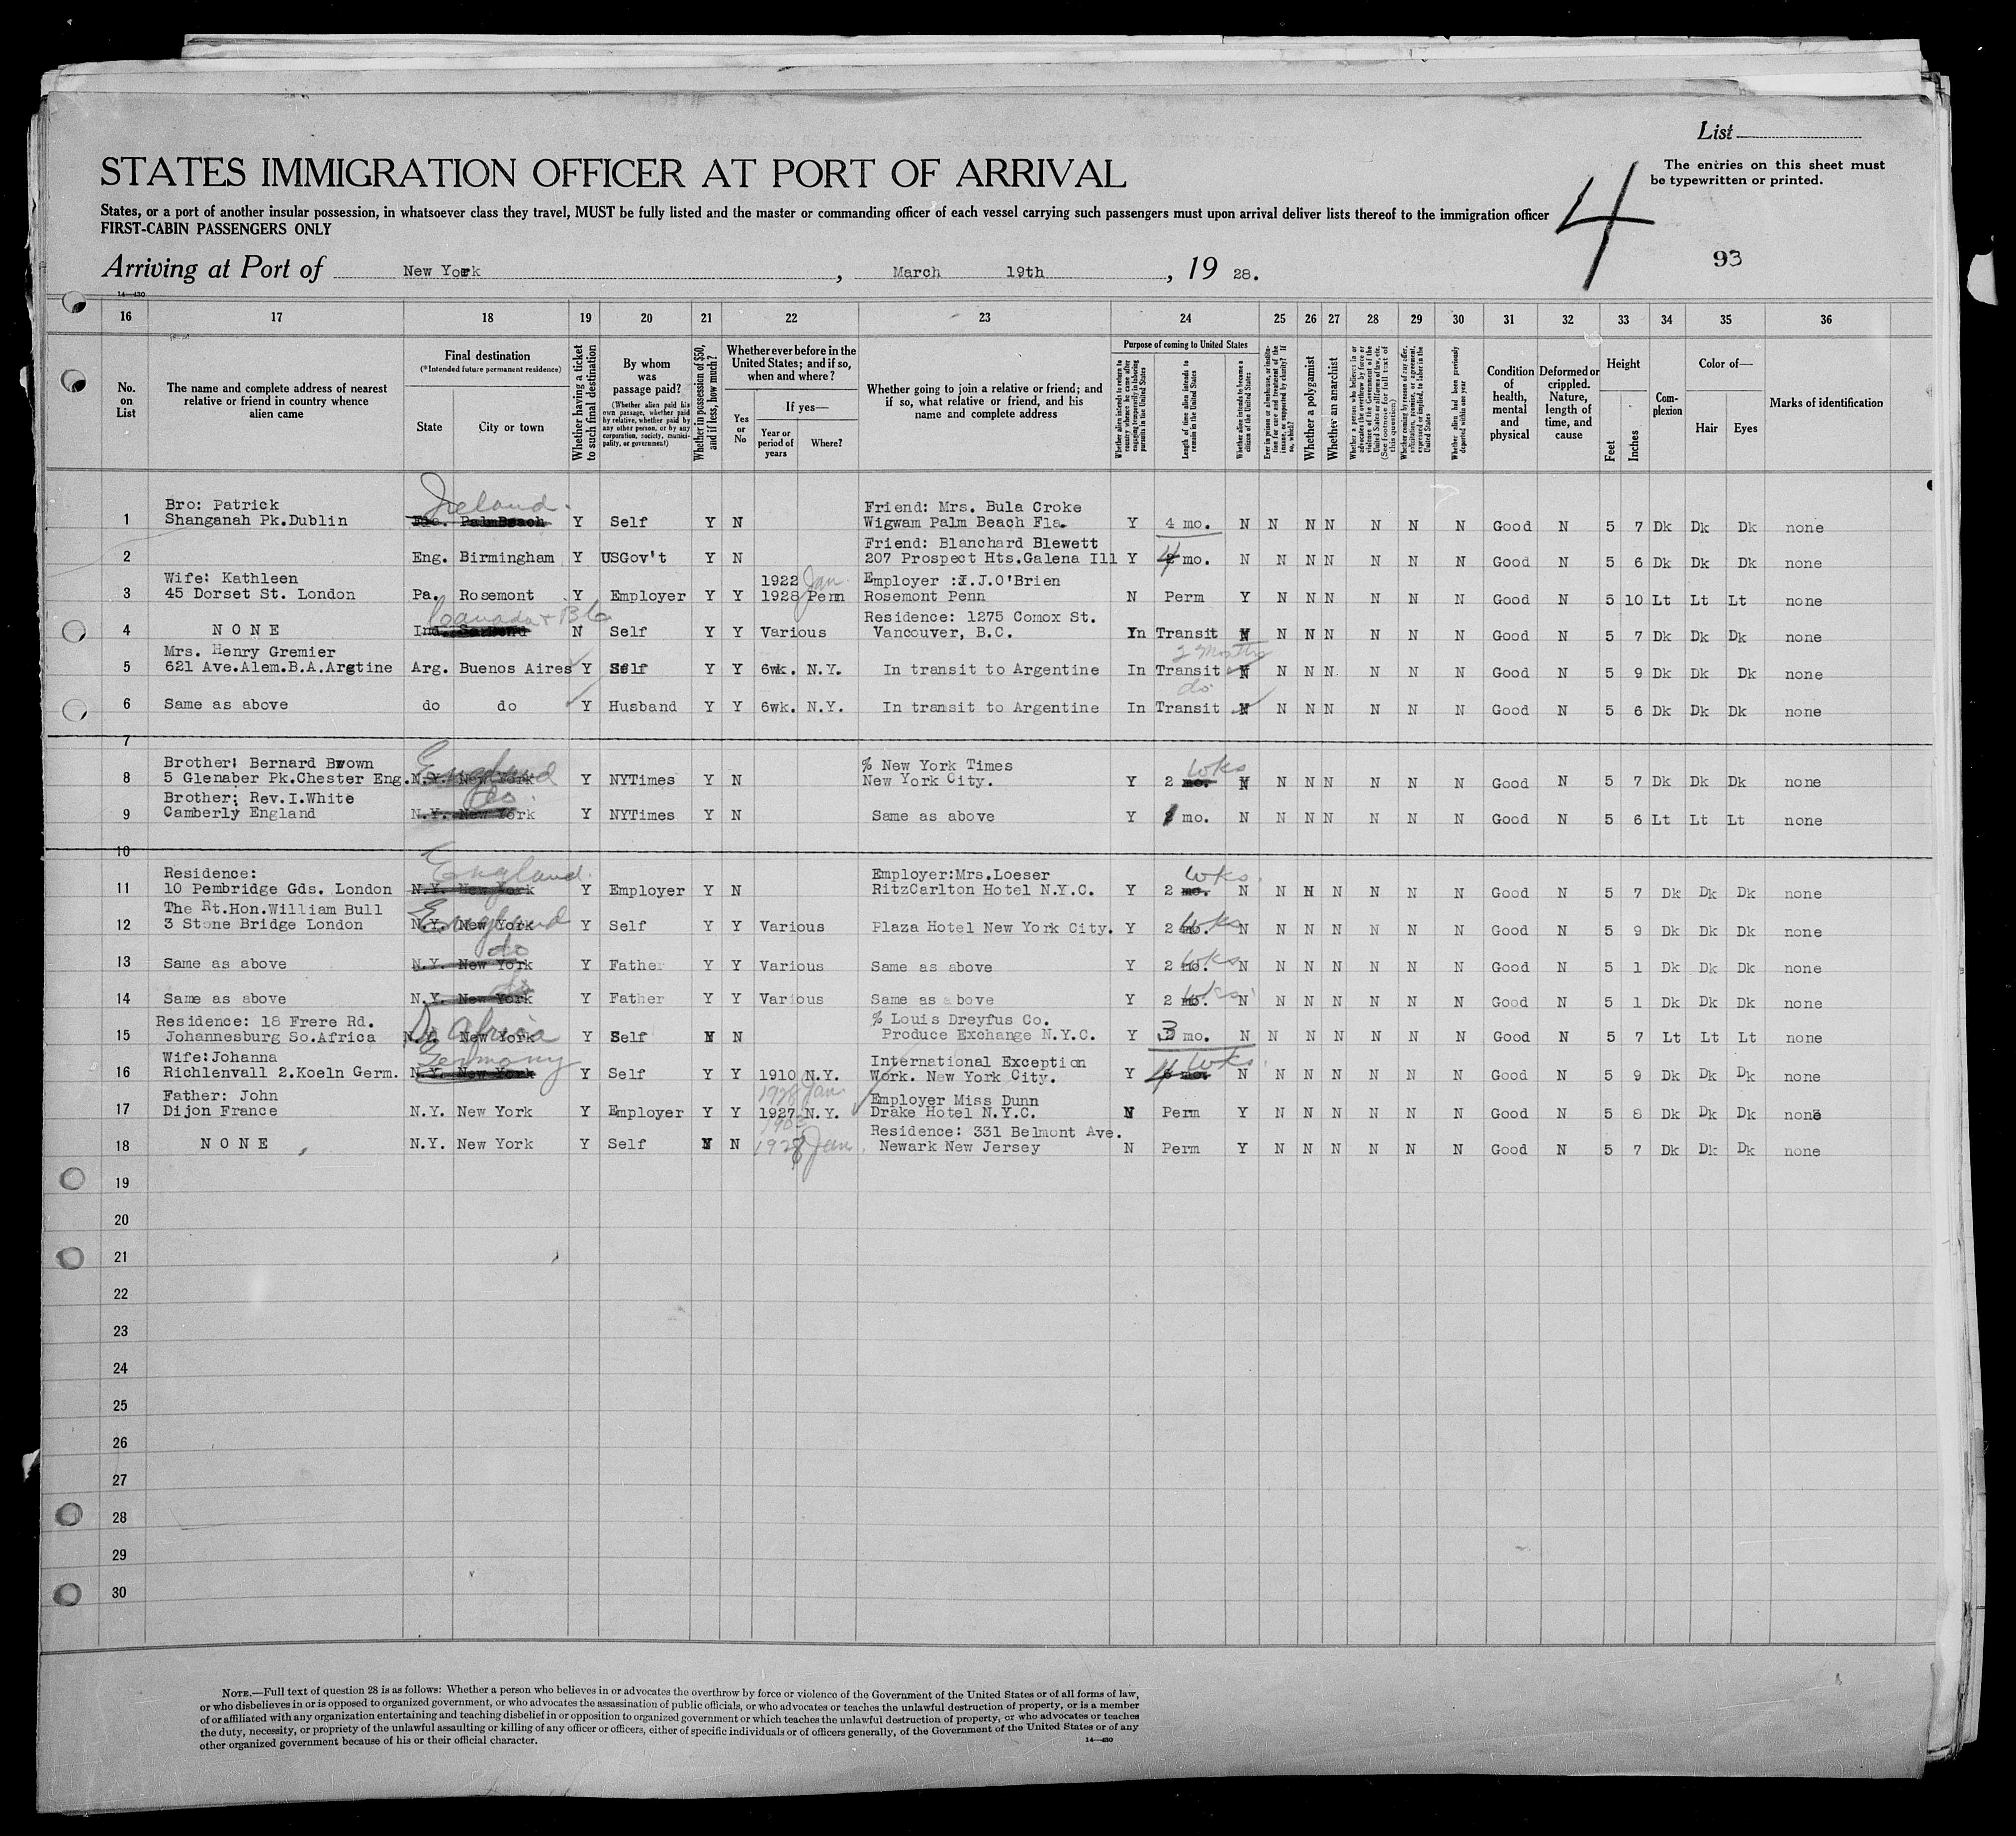 List
STATES IMMIGRATION OFFICER AT PORT OF ARRIVAL
The entries on this sheet must
be typewritten or printed.
4
States, or a port of another insular possession, in whatsoever class they travel, MUST be fully listed and the master or commanding officer of each vessel carrying such passengers must upon arrival deliver lists thereof to the immigration officer
FIRST-CABIN PASSENGERS ONLY
93
Arriving at Port of New York, March 19th, 19 28.
14—430
16 17 18 19 20 21 22 23 24 25 26 27 28 29 30 31 32 33 34 35 36
No. on List
The name and complete address of nearest relative or friend in country whence alien came
Final destination
(*Intended future permanent residence)
State City or town
Whether having a ticket to such final destination
By whom was passage paid?
(Whether alien paid his own passage, whether paid by relative, whether paid by any other person, or by any corporation, society, municipality, or government)
Whether in possession of $50, and if less, how much?
Whether ever before in the United States; and if so, when and where?
Yes or No
If yes—
Year or period of years
Where?
Whether going to join a relative or friend; and if so, what relative or friend, and his name and complete address
Purpose of coming to United States
Whether alien intends to return to country whence he came after engaging temporarily in laboring pursuits in the United States
Length of time alien intends to remain in the United States
Whether alien intends to become a citizen of the United States
Whether a polygamist
Whether an anarchist
Whether alien had been previously deported within one year
Condition of health, mental and physical
Deformed or crippled. Nature, length of time, and cause
Height
Feet Inches
Complexion
Color of—
Hair Eyes
Marks of identification
Ireland.
Bro: Patrick Friend: Mrs. Bula Croke
1 Shanganah Pk.Dublin Fla. PalmBeach Y Self Y N Wigwam Palm Beach Fla. Y 4 mo. N N N N N N N Good N 5 7 Dk Dk Dk none
Friend: Blanchard Blewett
2 Eng. Birmingham Y USGov't Y N 207 Prospect Hts.Galena Ill Y 4 mo. N N N N N N N Good N 5 6 Dk Dk Dk none
Wife: Kathleen 1922 Jan. Employer :I.J.O'Brien
3 45 Dorset St. London Pa. Rosemont Y Employer Y Y 1928 Penn Rosemont Penn N Perm Y N N N N N N Good N 5 10 Lt Lt Lt none
Canada + B C Residence: 1275 Comox St.
4 N O N E N Self Y Y Various Vancouver, B.C. In Transit N N N N N N N Good N 5 7 Dk Dk Dk none
Mrs. Henry Gremier 2 Months
5 621 Ave.Alem.B.A.Argtine Arg. Buenos Aires Y Self Y Y 6wk. N.Y. In transit to Argentine In Transit N N N N N N N Good N 5 9 Dk Dk Dk none
do
6 Same as above do do Y Husband Y Y 6wk. N.Y. In transit to Argentine In Transit N N N N N N N Good N 5 6 Dk Dk Dk none
7
Brother: Bernard Brown England % New York Times wks
8 5 Glenaber Pk.Chester Eng. N.Y. New York Y NYTimes Y N New York City. Y 2 mo. N N N N N N N Good N 5 7 Dk Dk Dk none
Brother: Rev.I.White do.
9 Camberly England N.Y. New York Y NYTimes Y N Same as above Y 1 mo. N N N N N N N Good N 5 6 Lt Lt Lt none
10
Residence: England. Employer:Mrs.Loeser wks.
11 10 Pembridge Gds. London N.Y. New York Y Employer Y N RitzCarlton Hotel N.Y.C. Y 2 mo. N N N N N N N Good N 5 7 Dk Dk Dk none
The Rt.Hon.William Bull England
12 3 Stone Bridge London N.Y. New York Y Self Y Y Various Plaza Hotel New York City. Y 2 mo. wks N N N N N N N Good N 5 9 Dk Dk Dk none
do
13 Same as above N.Y. New York Y Father Y Y Various Same as above Y 2 mo. wks N N N N N N N Good N 5 1 Dk Dk Dk none
do
14 Same as above N.Y. New York Y Father Y Y Various Same as above Y 2 mo. wks N N N N N N N Good N 5 1 Dk Dk Dk none
Residence: 18 Frere Rd. S. Africa % Louis Dreyfus Co.
15 Johannesburg So.Africa N.Y. New York Y Self N N Produce Exchange N.Y.C. Y 3 mo. N N N N N N N Good N 5 7 Lt Lt Lt none
Wife:Johanna Germany International Exception wks.
16 Richlenvall 2.Koeln Germ. N.Y. New York Y Self Y Y 1910 N.Y. Work. New York City. Y 4 mo. N N N N N N N Good N 5 9 Dk Dk Dk none
Father: John 1928 Jan Employer Miss Dunn
17 Dijon France N.Y. New York Y Employer Y Y 1927 N.Y. Drake Hotel N.Y.C. N Perm Y N N N N N N Good N 5 8 Dk Dk Dk none
Residence: 331 Belmont Ave.
18 N O N E N.Y. New York Y Self Y N 1928 Jan. Newark New Jersey N Perm Y N N N N N N Good N 5 7 Dk Dk Dk none
19
20
21
22
23
24
25
26
27
28
29
30
NOTE.—Full text of question 28 is as follows: Whether a person who believes in or advocates the overthrow by force or violence of the Government of the United States or of all forms of law,
or who disbelieves in or is opposed to organized government, or who advocates the assassination of public officials, or who advocates or teaches the unlawful destruction of property, or is a member
of or affiliated with any organization entertaining and teaching disbelief in or opposition to organized government or which teaches the unlawful destruction of property, or who advocates or teaches
the duty, necessity, or propriety of the unlawful assaulting or killing of any officer or officers, either of specific individuals or of officers generally, of the Government of the United States or of any
other organized government because of his or their official character.
14—430